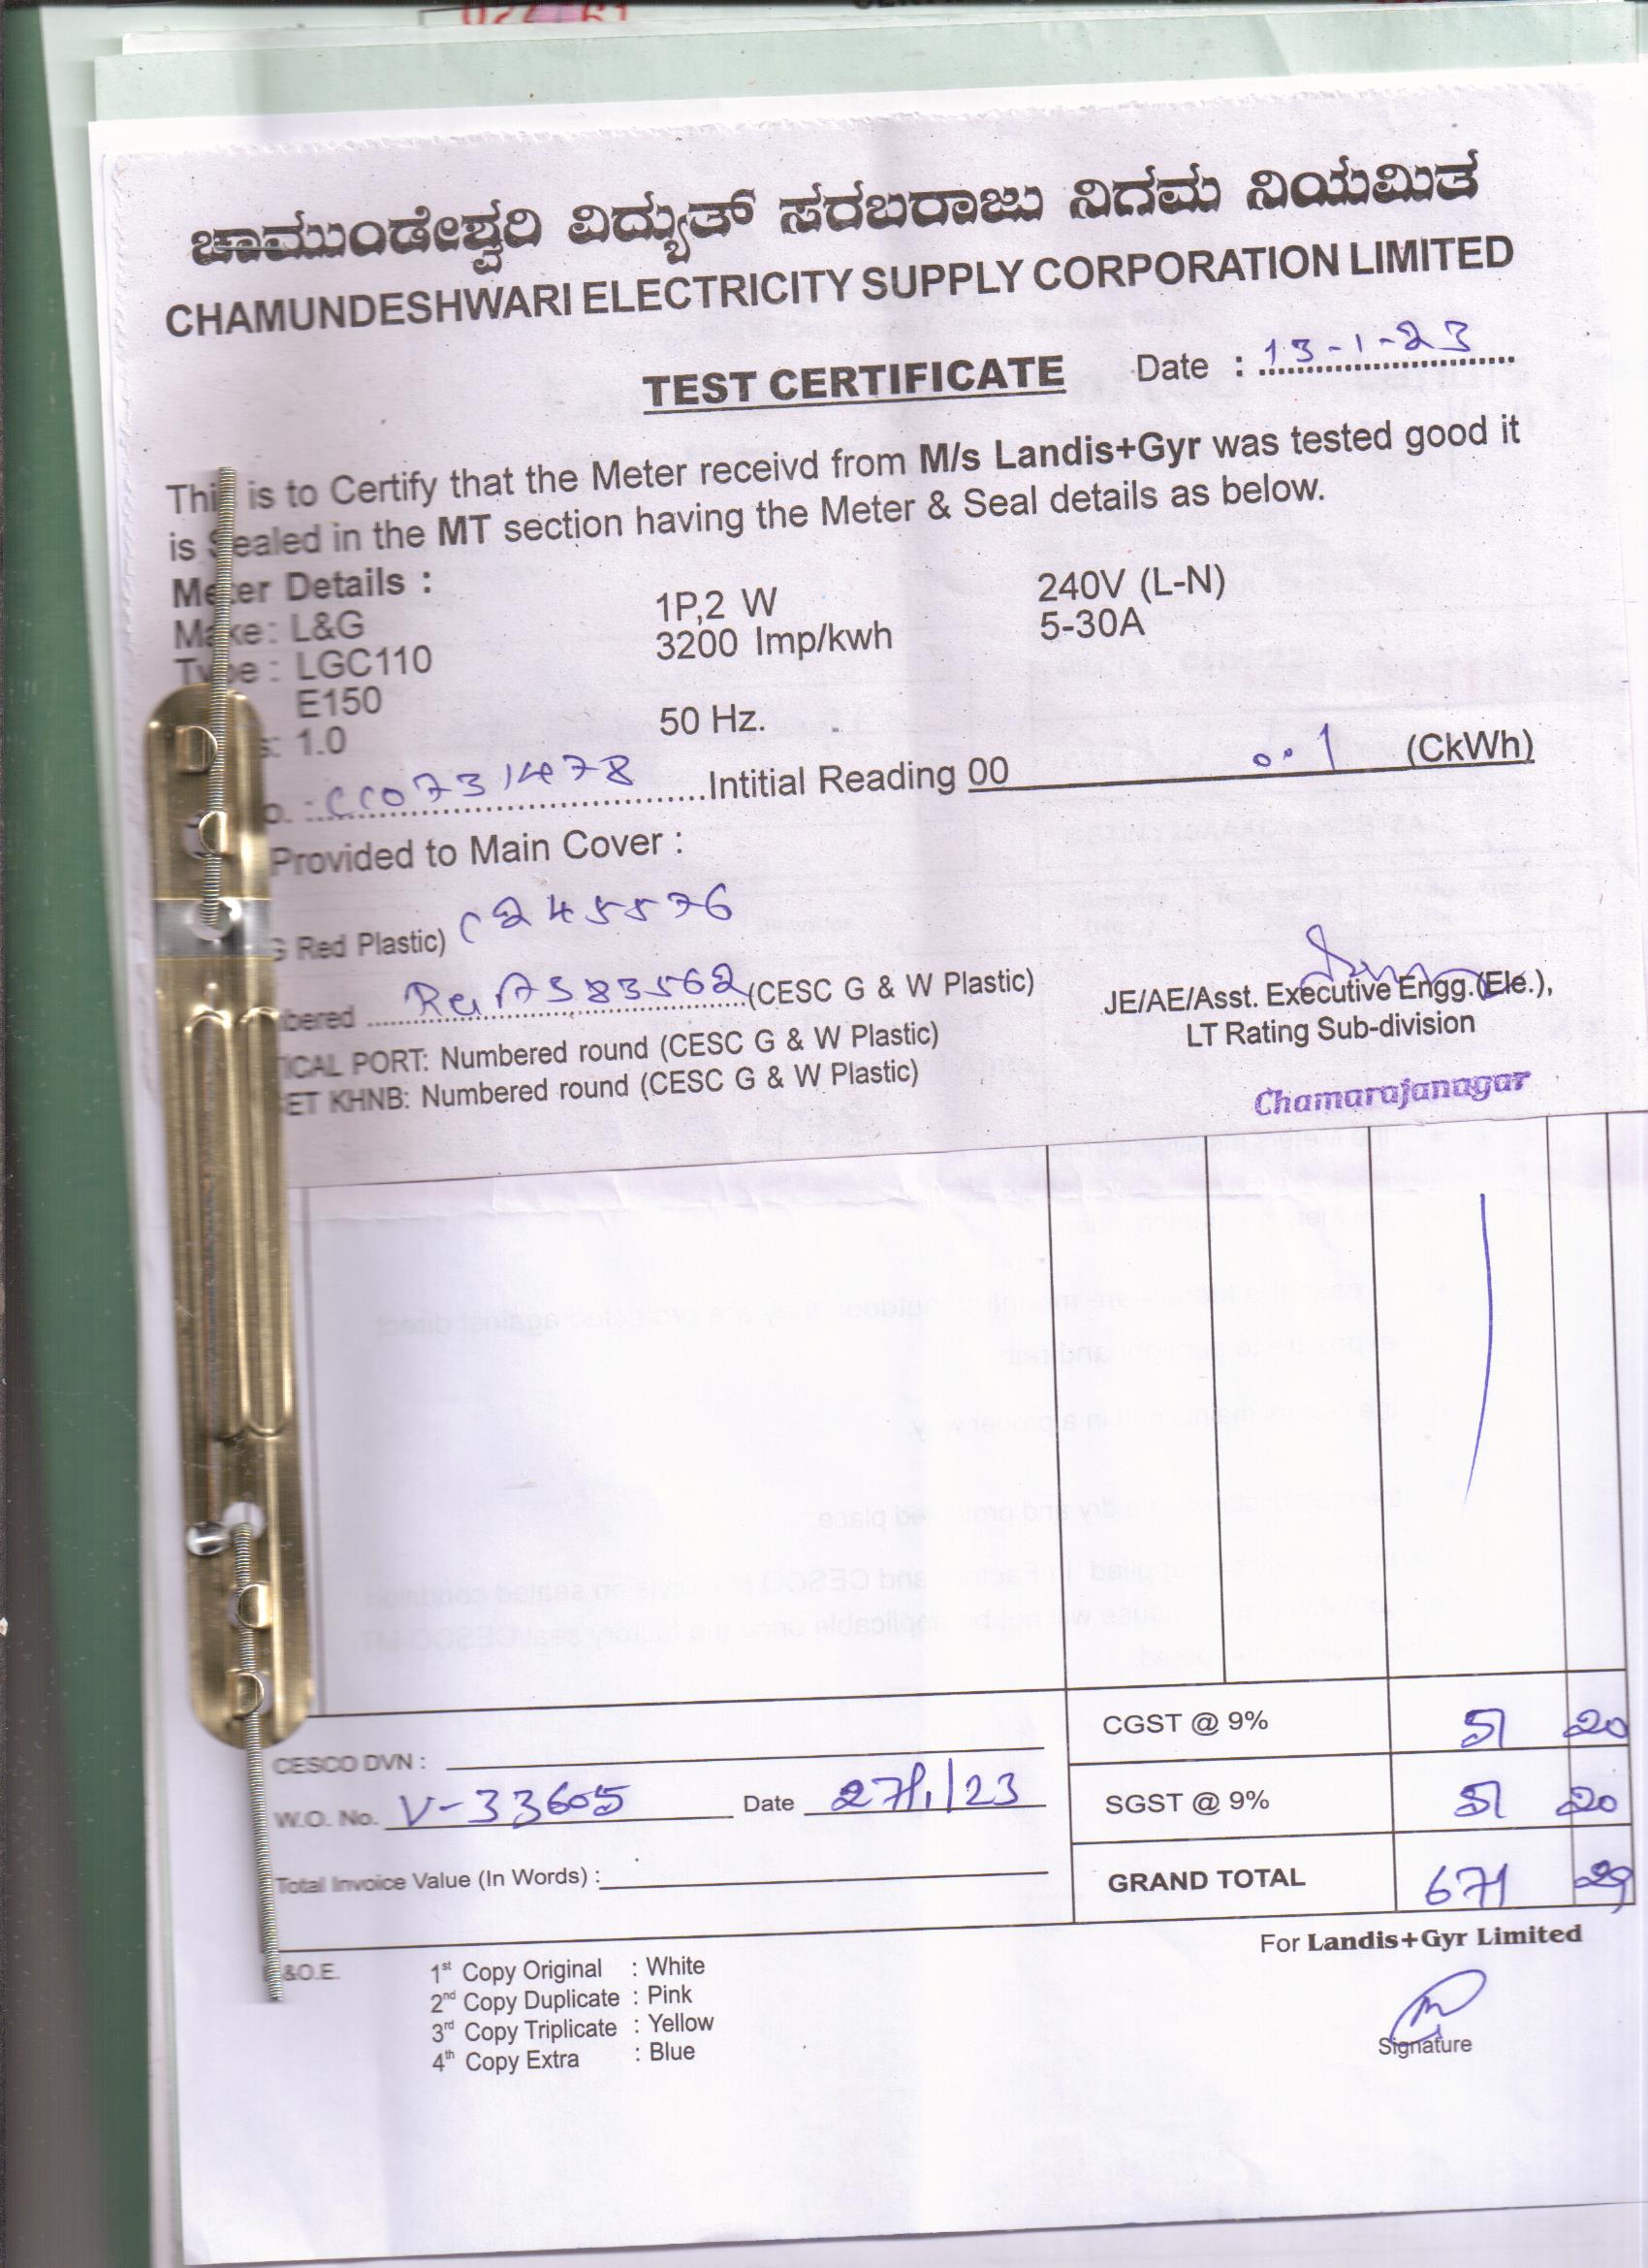 ಚಾಮುಂಡೇಶ್ವರಿ ವಿದ್ಯುತ್ ಸರಬರಾಜು ನಿಗಮ ನಿಯಮಿತ
CHAMUNDESHWARI ELECTRICITY SUPPLY CORPORATION LIMITED
TEST CERTIFICATE Date : 13-1-23
This is to Certify that the Meter receivd from M/s Landis+Gyr was tested good it
is Sealed in the MT section having the Meter & Seal details as below.
Meter Details :
Make: L&G 1P,2 W 240V (L-N)
Type : LGC110 3200 Imp/kwh 5-30A
E150
1.0 50 Hz.
CC0731478 Intitial Reading 00 0.1 (CkWh)
Provided to Main Cover :
Red Plastic) C245576
A583562 (CESC G & W Plastic)
JE/AE/Asst. Executive Engg.(Ele.),
LT Rating Sub-division
PORT: Numbered round (CESC G & W Plastic)
KHNB: Numbered round (CESC G & W Plastic)
Chamarajanagar
CGST @ 9% 51 20
CESCO DVN :
W.O. No. V-33605 Date 27/1/23
SGST @ 9% 51 20
Total Invoice Value (In Words) :
GRAND TOTAL 671 29
For Landis+Gyr Limited
&O.E.
1st Copy Original : White
2nd Copy Duplicate : Pink
3rd Copy Triplicate : Yellow
4th Copy Extra : Blue
Signature